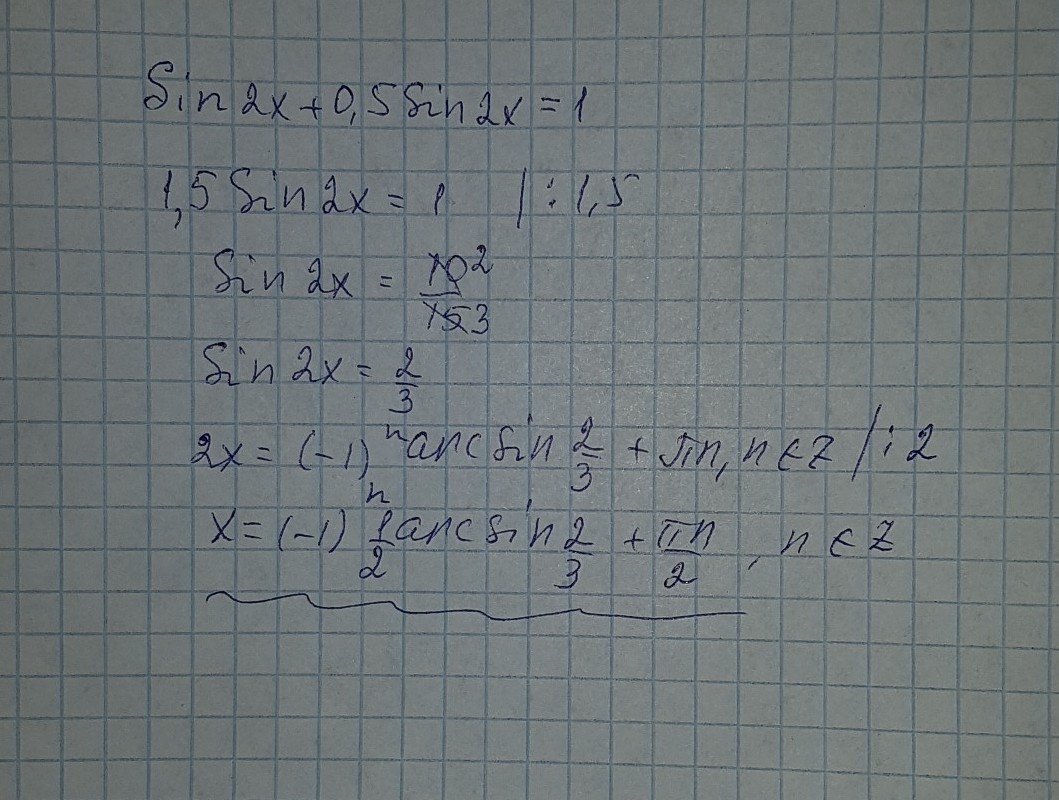 Sin 2x + 0,5 Sin 2x = 1
1,5 Sin 2x = 1 | : 1,5
Sin 2x = 10 2 / 15 3
Sin 2x = 2/3
2x = (-1)^n arcsin 2/3 + πn, n ∈ Z | : 2
x = (-1)^n 1/2 arcsin 2/3 + πn/2, n ∈ Z